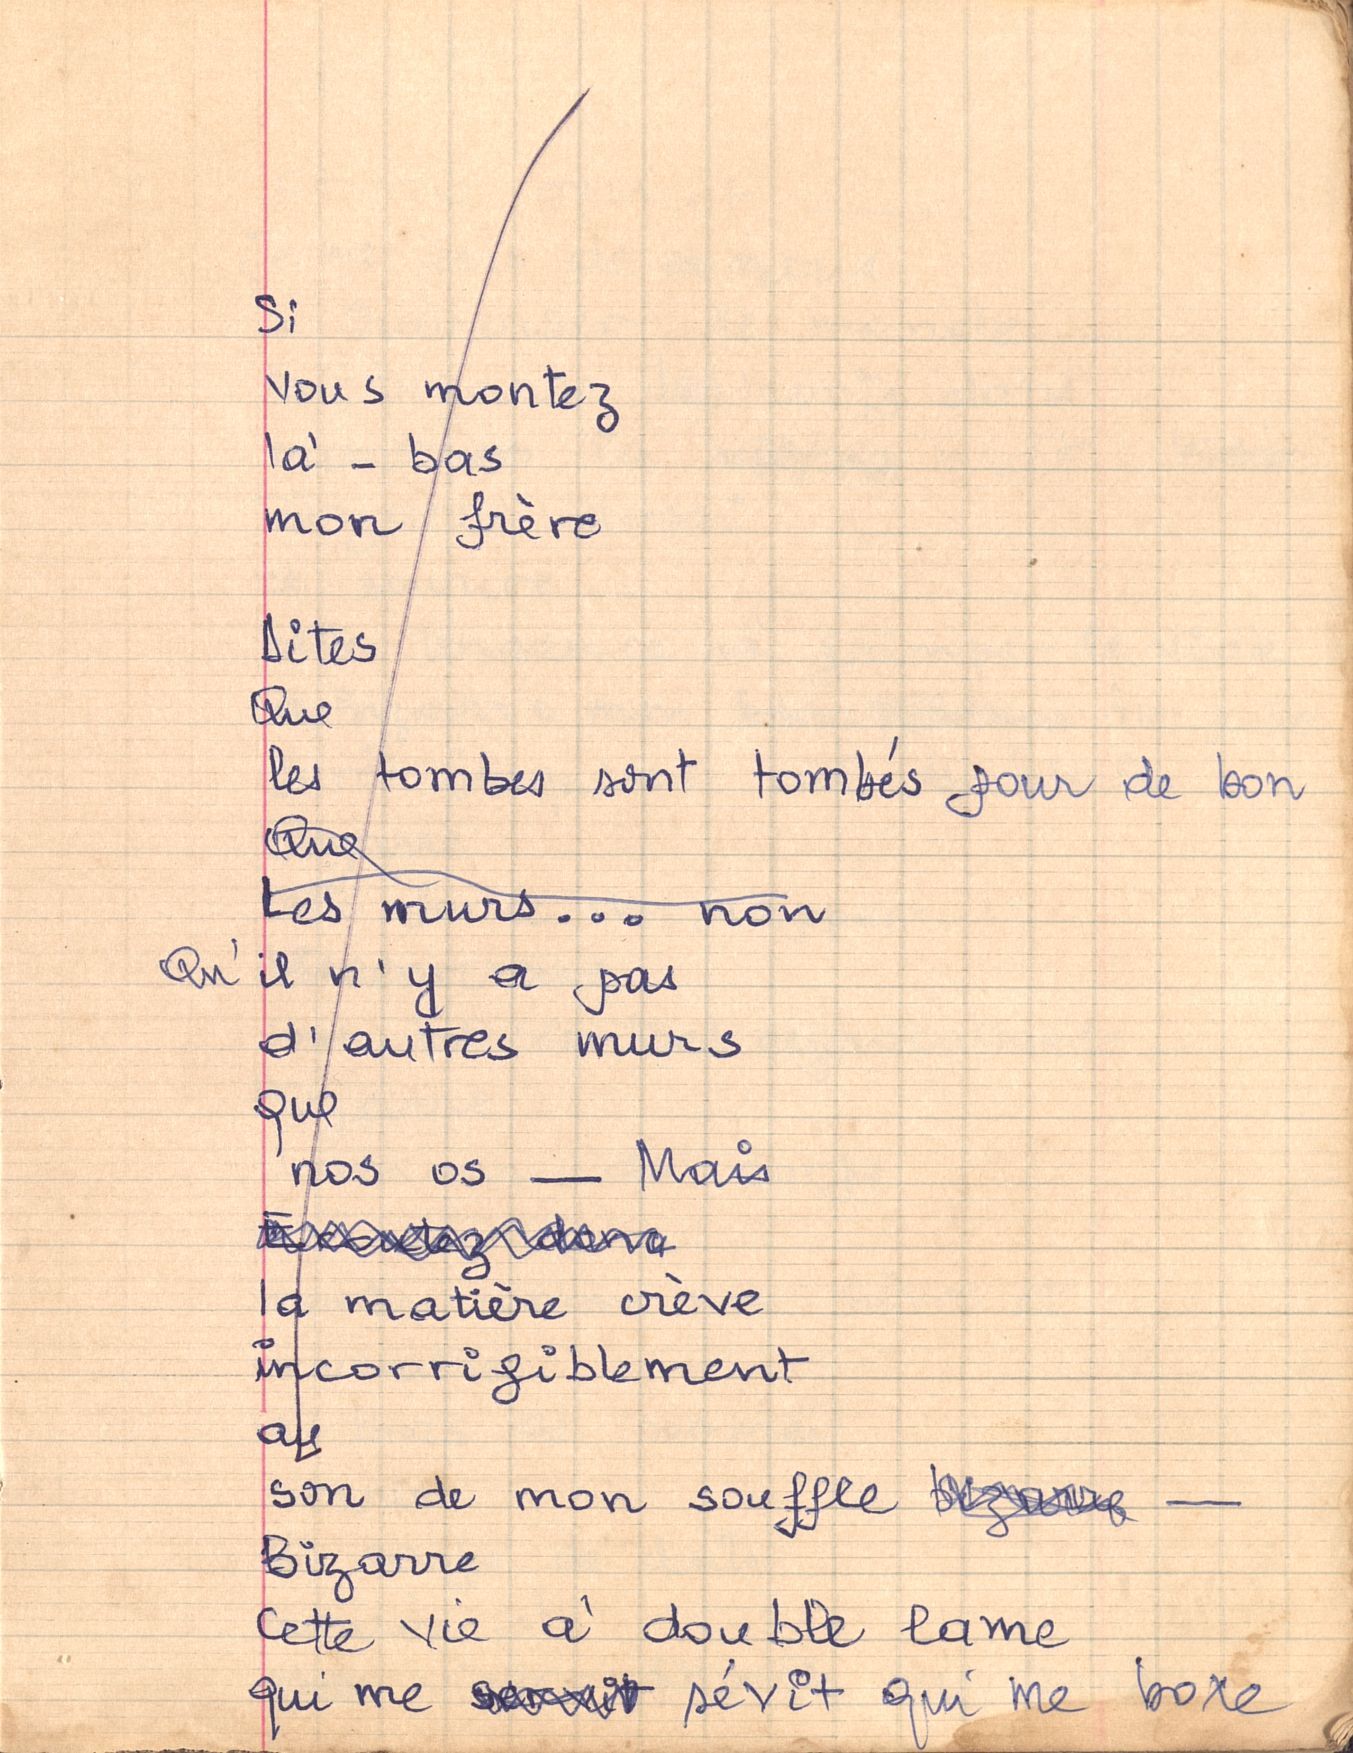 Si
vous montez
là-bas
mon frère
Dites
Que
les tombes sont tombés pour de bon
Que
Les murs... non
Qu'il n'y a pas
d'autres murs
que
nos os — Mais
la matière crève
incorrigiblement
au
son de mon souffle bizarre —
Bizarre
Cette vie à double lame
qui me sévit qui me boxe